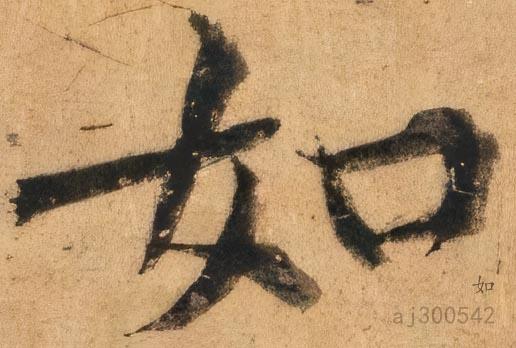 如
如
aj300542